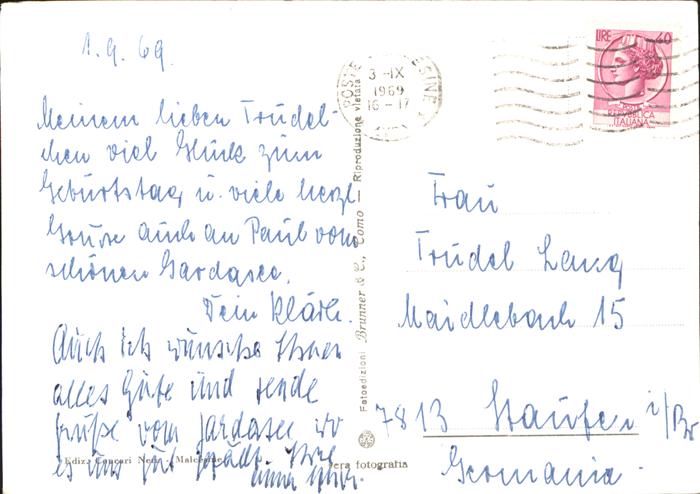 1.9.69
Meinem lieben Trudel-
chen viel Glück zum
Geburtstag u. viele herzl.
Grüsse auch an Paul vom
schönen Gardasee.
Dein Klärle.
Auch ich wünsche Ihnen
alles Gute und sende
Grüße vom Gardasee wo
es uns gut gefällt. Ihre
Ediz. Concari - Malcesine
Fotoedizioni Brunner & C., Como — Riproduzione vietata
Vera fotografia
POSTE
3 -IX
1969
16 - 17
LIRE 40
REPUBBLICA
ITALIANA
Frau
Trudel Lang
Maidlebach 15
7813 Staufen i/Br
Germania.